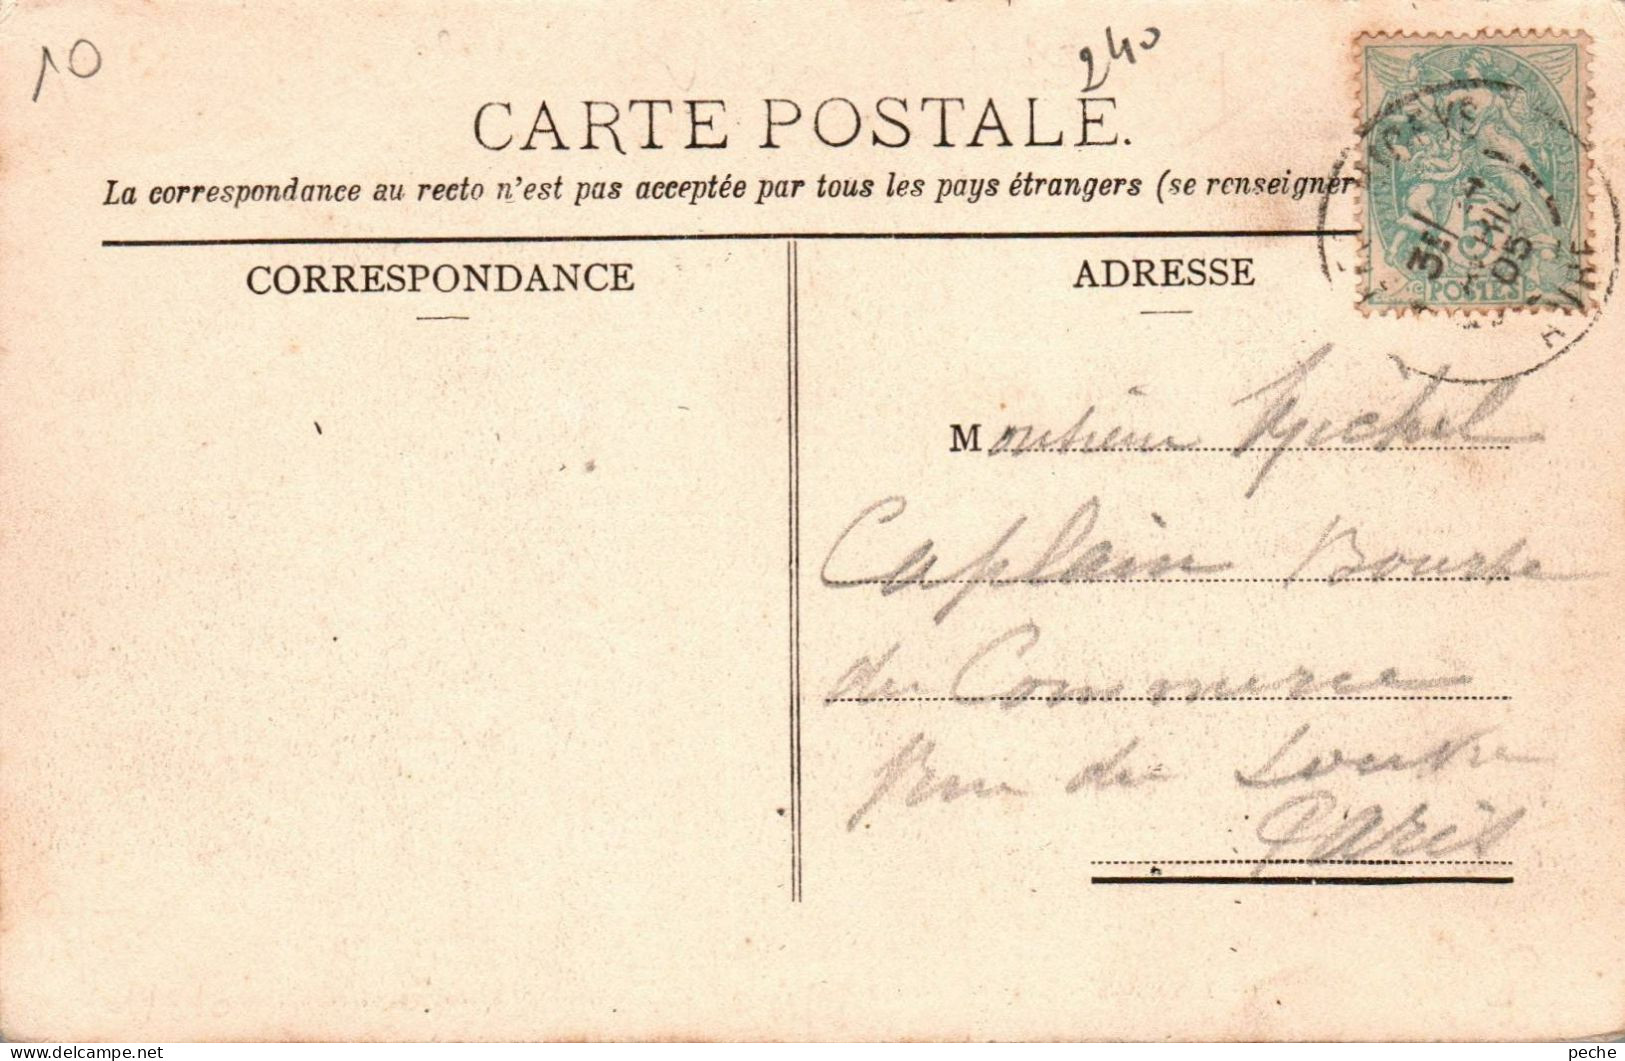 10
240
CARTE POSTALE.
La correspondance au recto n'est pas acceptée par tous les pays étrangers (se renseigner
CORRESPONDANCE
ADRESSE
3E/
AVRIL
05
5
POSTES
Monsieur Michel
Caplain Bourse
du Commerce
Rue du Louvre
Paris
www.delcampe.net
peche